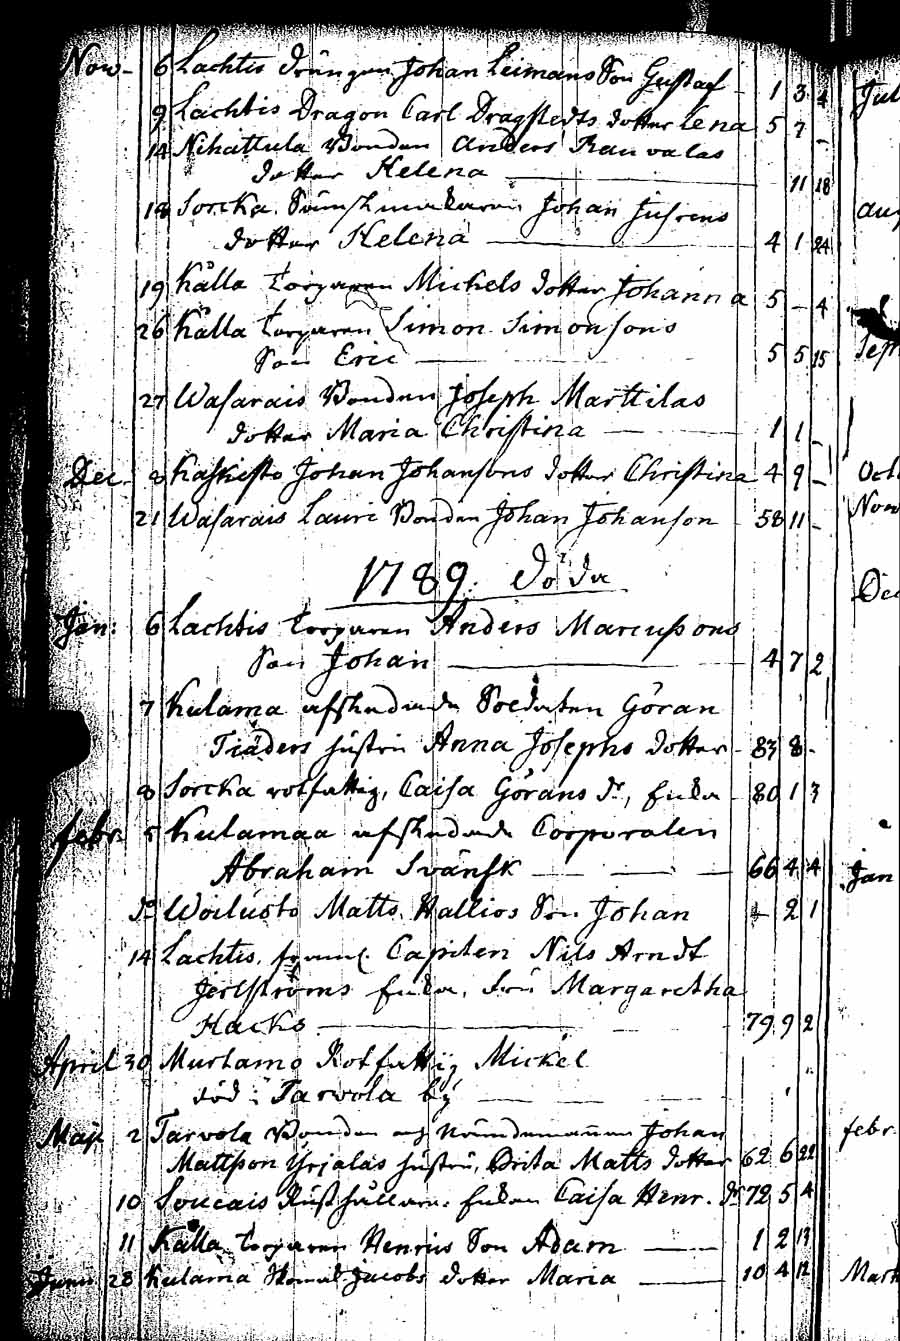 Nov. 6 Lachtis drängen Johan Leimans Son Gustaf 1 3 4
9 Lachtis Dragon Carl Dragstedts dotter Lena 5 7 -
14 Nihattula Bonden Anders Rauvalas
dotter Helena 11 18
18 Sorcka Johan
dotter Helena 4 1 24
19 Källa torparen Mickels dotter Johanna 5 - 4
26 Källa torparen Simon Simonsons
Son Eric 5 5 15
27 Wasarais Bonden Joseph Marttilas
dotter Maria Christina 1 1 -
Dec. 8 Kaskisto Johan Johansons dotter Christina 4 9 -
21 Wasarais Lauri Bonden Johan Johanson 58 11 -
1789. Döda
Jan: 6 Lachtis torparen Anders Marcussons
Son Johan 4 7 2
7 Kulama afskedade Soldaten Göran
Träders hustru Anna Josephs dotter 83 8 -
8 Sorcka rotfattig, Caisa Görans dr, Enka 80 1 3
febr. 5 Kulamaa afskedade Corporalen
Abraham Svänsk 66 4 4
do Woilusto Matts Hallios Son Johan - 2 1
14 Lachtis, Capiten Nils Arndt
Jerlströms Enka, Fru Margaretha
Hacks 79 9 2
April 30 Murtamo Rotfattig Mickel
död i Tarvola by
Maji 2 Tarvola Bonden och Nämndemannen Johan
Mattsson Yrjalas hustru, Brita Matts dotter 62 6 22
10 Soucais Rusthållare Enkan Caisa Henr. dr 72 5 4
11 Källa torparen Henrics Son Adam 1 2 13
Junii 28 Kulama Jacobs dotter Maria 10 4 12
Jul
aug
Sept
Oct
Nov
Dec
Jan
febr.
Mart